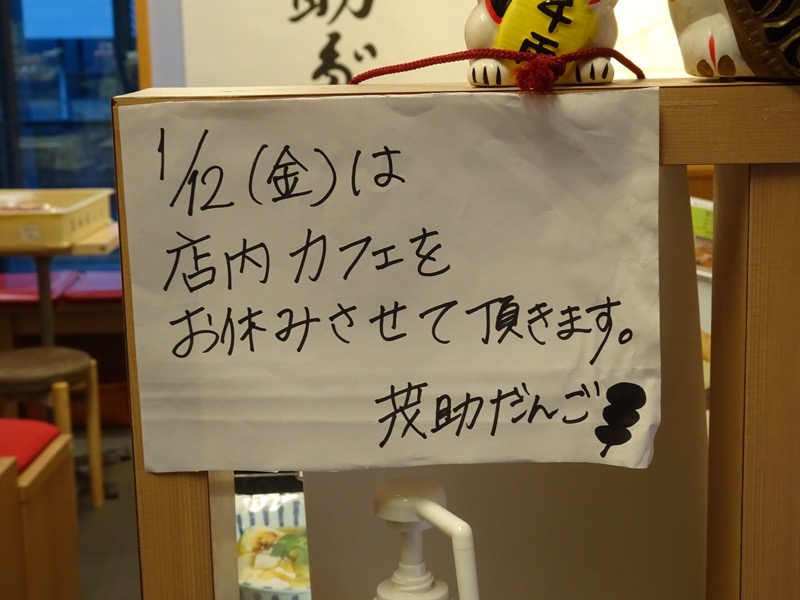 助だ
1/12(金)は
店内カフェを
お休みさせて頂きます。
茂助だんご